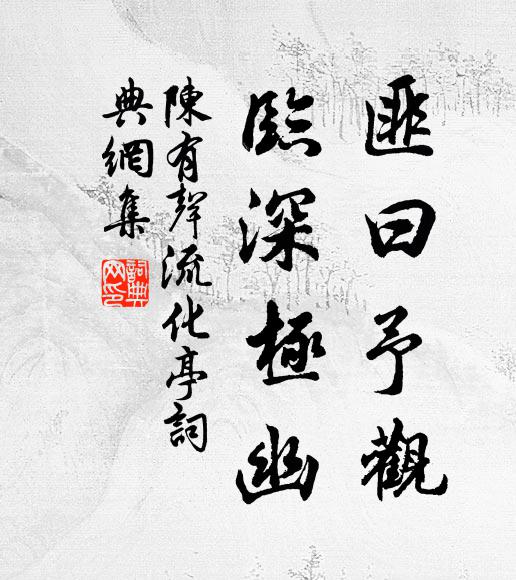 匪曰予觀
臨深極幽
陳有聲流化亭詞
典網集
詞典
网印